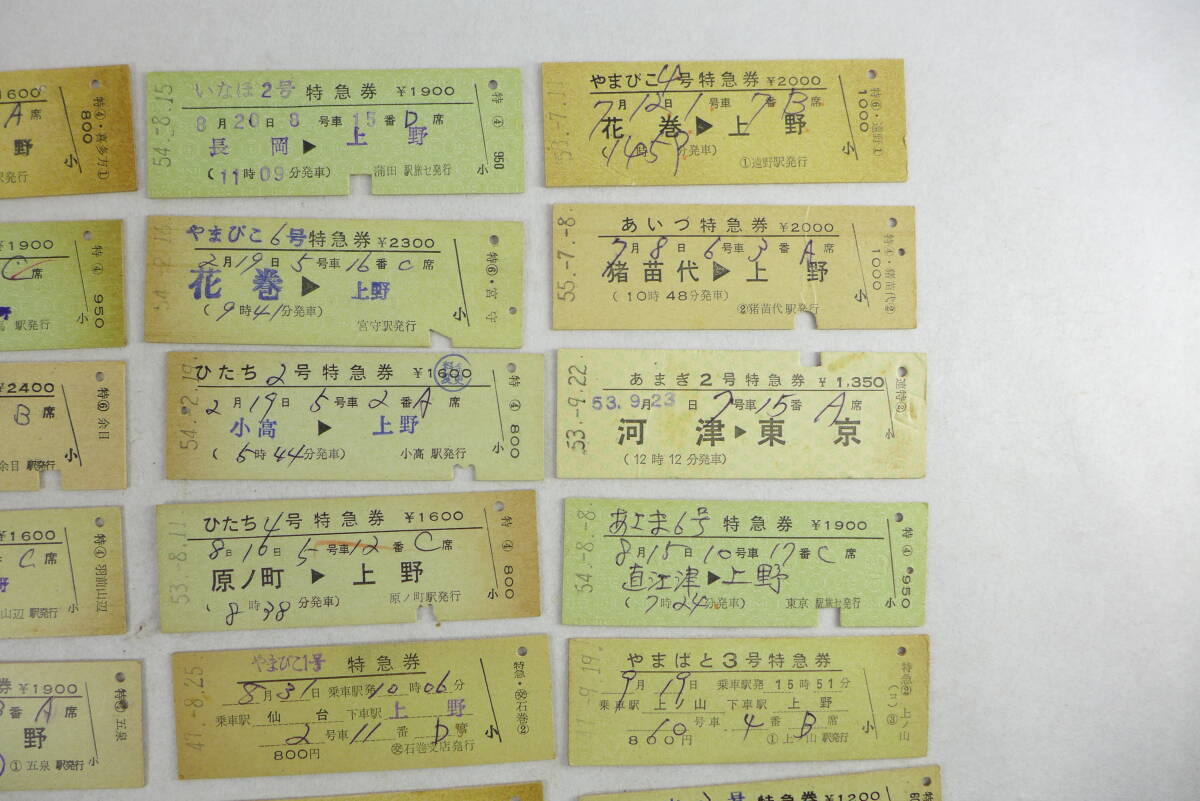 ¥1600
A 席
野
駅発行
特④・喜多方①
800
小
¥1900
C 席
駅発行
特④
950
小
¥2400
B 席
余目 駅発行
特⑥ 余目
小
¥1600
C 席
山辺 駅発行
特④ 羽前山辺
小
券 ¥1900
番 A 席
野
① 五泉 駅発行
五泉
小
54.-8.15
いなほ2号 特急券 ¥1900
8月20日8号車15番D席
長岡▶上野
(11時09分発車) 蒲田 駅旅セ発行
特④ 950
小
やまびこ6号特急券 ¥2300
2月19日5号車16番C席
花巻▶上野
(9時41分発車)
宮守駅発行
特⑥・宮守
小
54.-2.19
ひたち2号特急券 ¥1600
2月19日5号車2番A席
小高▶上野
(6時44分発車) 小高駅発行
特④ 800
小
53.-8.11
ひたち4号特急券 ¥1600
8月16日5号車12番C席
原ノ町▶上野
(8時38分発車) 原ノ町駅発行
特④ 800
小
47.-8.25
やまびこ1号 特急券
8月31日 乗車駅発10時06分
乗車駅 仙台 下車駅 上野
2号車11番D席
800円 石巻支店発行
石巻②
小
やまびこ4号特急券 ¥2000
7月12日1号車7番B席
花巻▶上野
(14時59分発車) ①遠野駅発行
特⑥・遠野①
1000
小
55.-7.-8
あいづ特急券 ¥2000
7月8日6号車3番A席
猪苗代▶上野
(10時48分発車)
②猪苗代駅発行
特④・猪苗代②
1000
小
53.-9.22
あまぎ2号特急券 ¥1,350
53.9.23日7号車15番A席
河津▶東京
(12時12分発車)
小
54.-8.-8
あさま6号 特急券 ¥1900
8月15日10号車17番C席
直江津▶上野
(7時24分発車) 東京 駅旅セ発行
特④ 950
小
47.-9.19
やまばと3号特急券
9月19日 乗車駅発 15時51分
乗車駅 上ノ山 下車駅 上野
10号車4番B席
800円 ①上ノ山駅発行
上ノ山
小
号 特急券 ¥1200